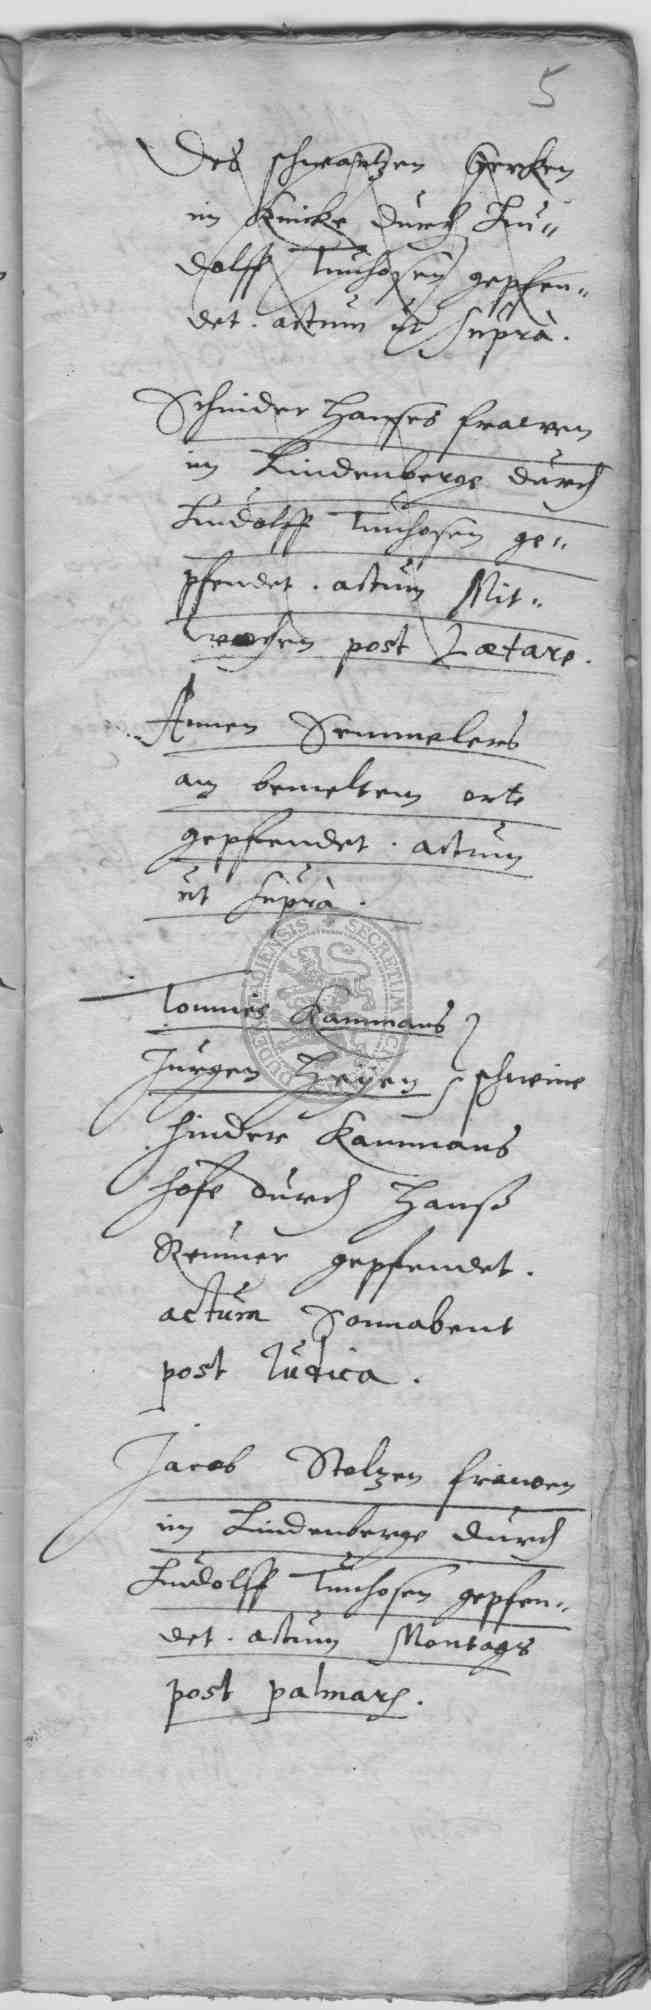 5
Des schwartzen Gercken
im Knicke durch Lu„
dolff Tunhosen gepfen„
det. actum ut suprà.
Schnider Hanses frawen
im Lindenberge durch
Ludolff Tunhosen ge„
pfendet. actum Mit„
wochen post Lætare.
Annen Semmelers
am bemeltem orte
gepfendet. actum
ut suprà.
Tonnies Kammans
Jurgen Heÿen schweine
hinder Kammans
hofe durch Hanß
Renner gepfendet.
actum Sonnabent
post Iudica.
Jacob Stoltzen frawen
im Lindenberge durch
Ludolff Tunhosen gepfen„
det. actum Montags
post palmarum.
SECRETUM